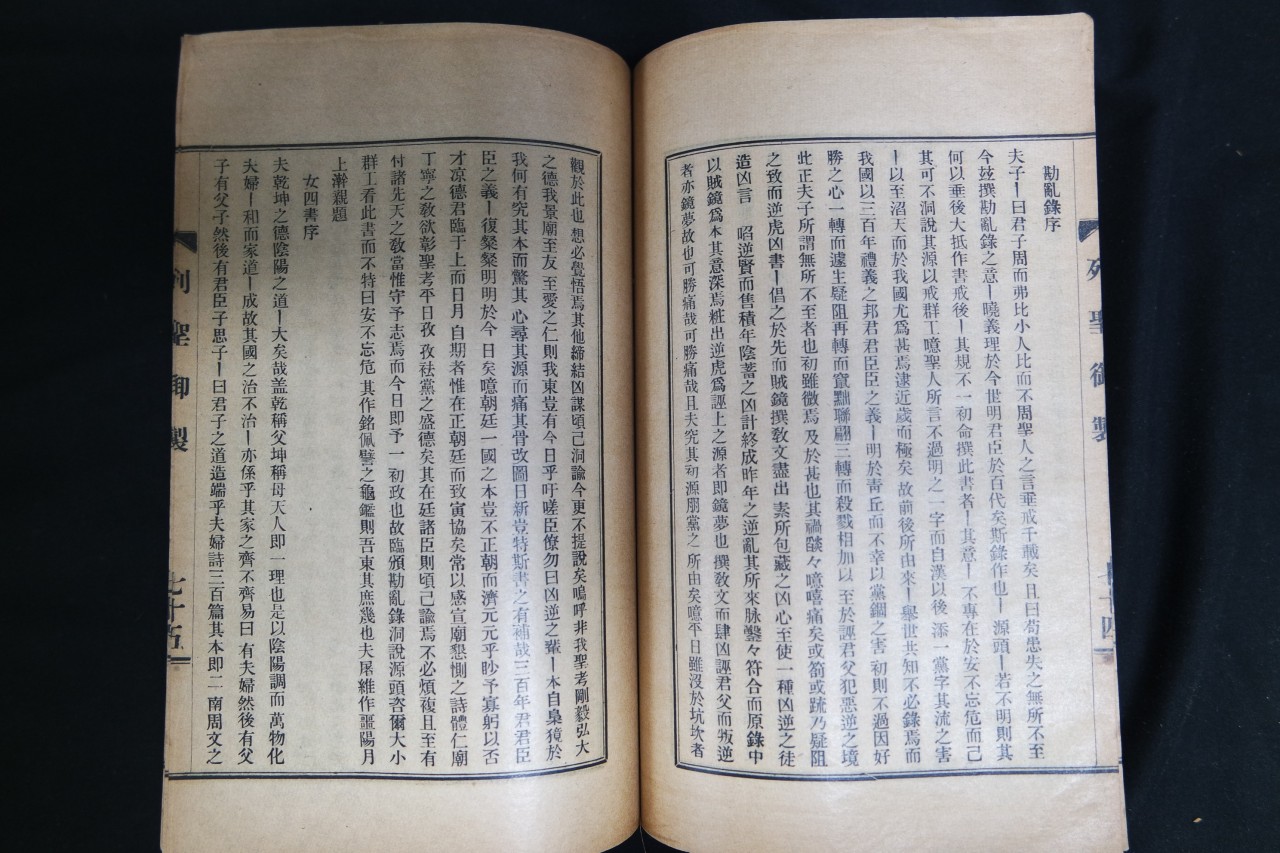 勘亂錄序
夫子ー曰君子周而弗比小人比而不周聖人之言垂戒千載矣且曰苟患失之無所不至
今玆撰勘亂錄之意ー曉義理於今世明君臣於百代矣斯錄作也ー源頭ー若不明則其
何以垂後大抵作書戒後ー其規不一初命撰此書者ー其意ー不專在於安不忘危而己
其可不洞說其源以戒群工噫聖人所言不過明之一字而自漢以後添一黨字其流之害
ー以至滔天而於我國尤爲甚焉逮近歲而極矣故前後所由來ー擧世共知不必錄焉而
我國以三百年禮義之邦君君臣臣之義ー明於靑丘而不幸以黨錮之害初則不過因好
勝之心一轉而遽生疑阻再轉而竄黜聯翩三轉而殺戮相加以至於誣君父犯惡逆之境
此正夫子所謂無所不至者也初雖微焉及於甚也其禍燄々噫嘻痛矣或箚或疏乃疑阻
之致而逆虎凶書ー倡之於先而賊鏡撰敎文盡出素所包藏之凶心至使一種凶逆之徒
造凶言昭逆賢而售積年陰蓄之凶計終成昨年之逆亂其所來脉鑿々符合而原錄中
以賊鏡爲本其意深焉粧出逆虎爲誣上之源者即鏡夢也撰敎文而肆凶誣君父而叛逆
者亦鏡夢故也可勝痛哉可勝痛哉且夫究其初源朋黨之所由矣噫平日雖沒於坑坎者
列聖御製
七十四
觀於此也想必覺悟焉其他締結凶謀頃己洞論今更不提說矣嗚呼非我聖考剛毅弘大
之德我景廟至友至愛之仁則我東豈有今日乎吁嗟臣僚勿曰凶逆之輩ー本自梟獍於
我何有究其本而驚其心尋其源而痛其骨改圖日新豈特斯書之有補哉三百年君君臣
臣之義ー復粲粲明明於今日矣噫朝廷一國之本豈不正朝而濟元元乎眇予寡躬以否
才凉德君臨于上而日月自期者惟在正朝廷而致寅協矣常以感宣廟懇惻之詩體仁廟
丁寧之敎欲彰聖考平日孜孜祛黨之盛德矣其在廷諸臣則頃己論焉不必煩複且至有
付諸先天之敎當惟守予志焉而今日即予一初政也故臨頒勘亂錄洞說源頭咨爾大小
群工看此書而不特曰安不忘危其作銘佩譬之龜鑑則吾東其庶幾也夫屠維作噩陽月
上澣親題
女四書序
夫乾坤之德陰陽之道ー大矣哉盖乾稱父坤稱母天人即一理也是以陰陽調而萬物化
夫婦ー和而家道ー成故其國之治不治ー亦係乎其家之齊不齊易曰有夫婦然後有父
子有父子然後有君臣子思子ー曰君子之道造端乎夫婦詩三百篇其本即二南周文之
列聖御製
七十五